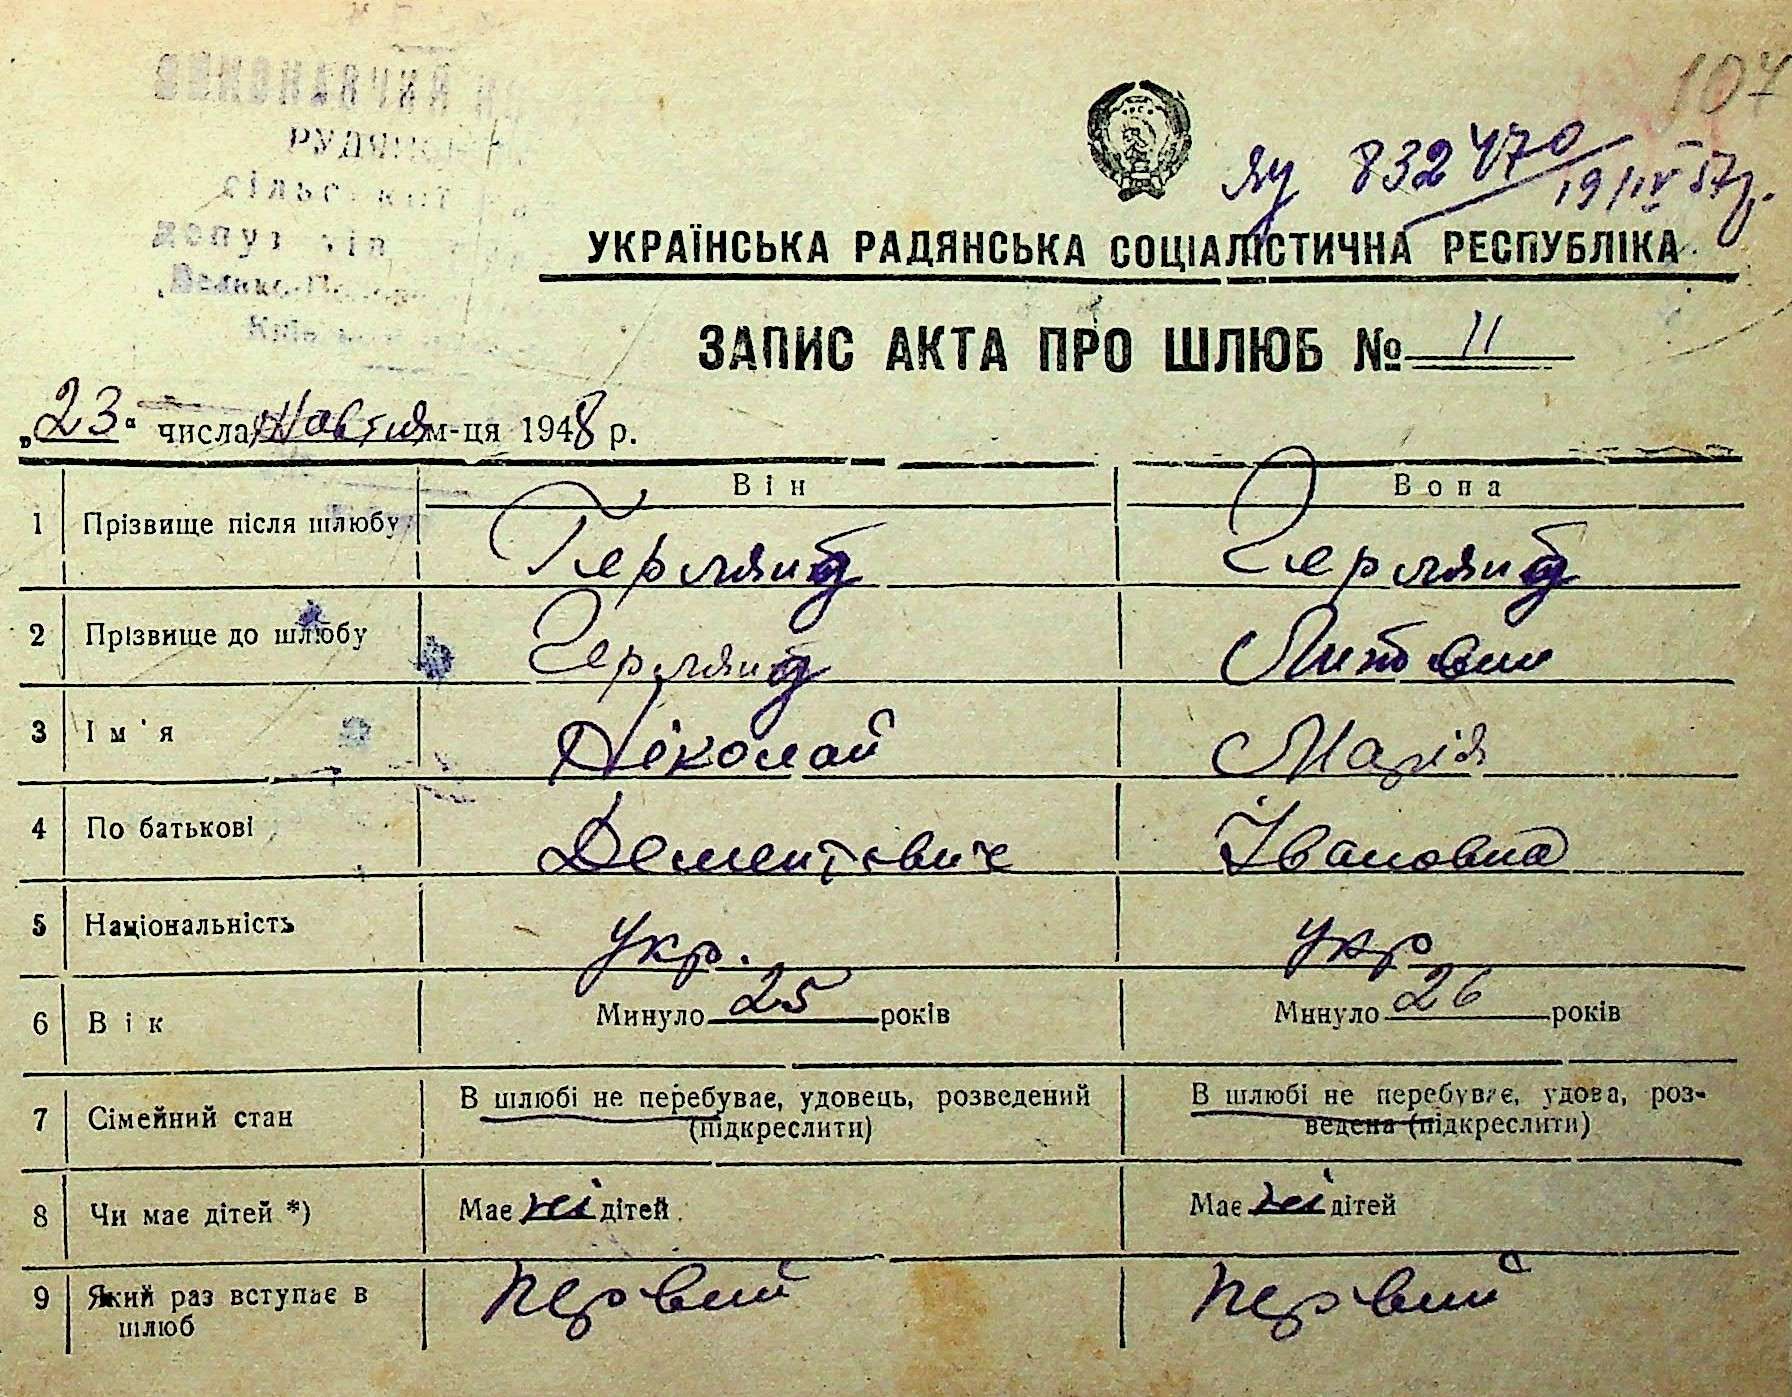 107
РУДЯНСЬ
сільської
депутатів
Велико-По
Київ
ЯУ 832470
19/IV 57р.
УКРАЇНСЬКА РАДЯНСЬКА СОЦІАЛІСТИЧНА РЕСПУБЛІКА
ЗАПИС АКТА ПРО ШЛЮБ № 11
„23“ числа Жовтня м-ця 1948 р.
Він Вона
1 Прізвище після шлюбу Гермянд Гермянд
2 Прізвище до шлюбу Гермянд Литовин
3 Ім'я Ніколай Марія
4 По батькові Дементевич Івановна
5 Національність укр. укр
6 Вік Минуло 25 років Минуло 26 років
7 Сімейний стан В шлюбі не перебуває, удовець, розведений (підкреслити) В шлюбі не перебуває, удова, розведена (підкреслити)
8 Чи має дітей *) Має ні дітей Має ні дітей
9 Який раз вступає в шлюб первий первий